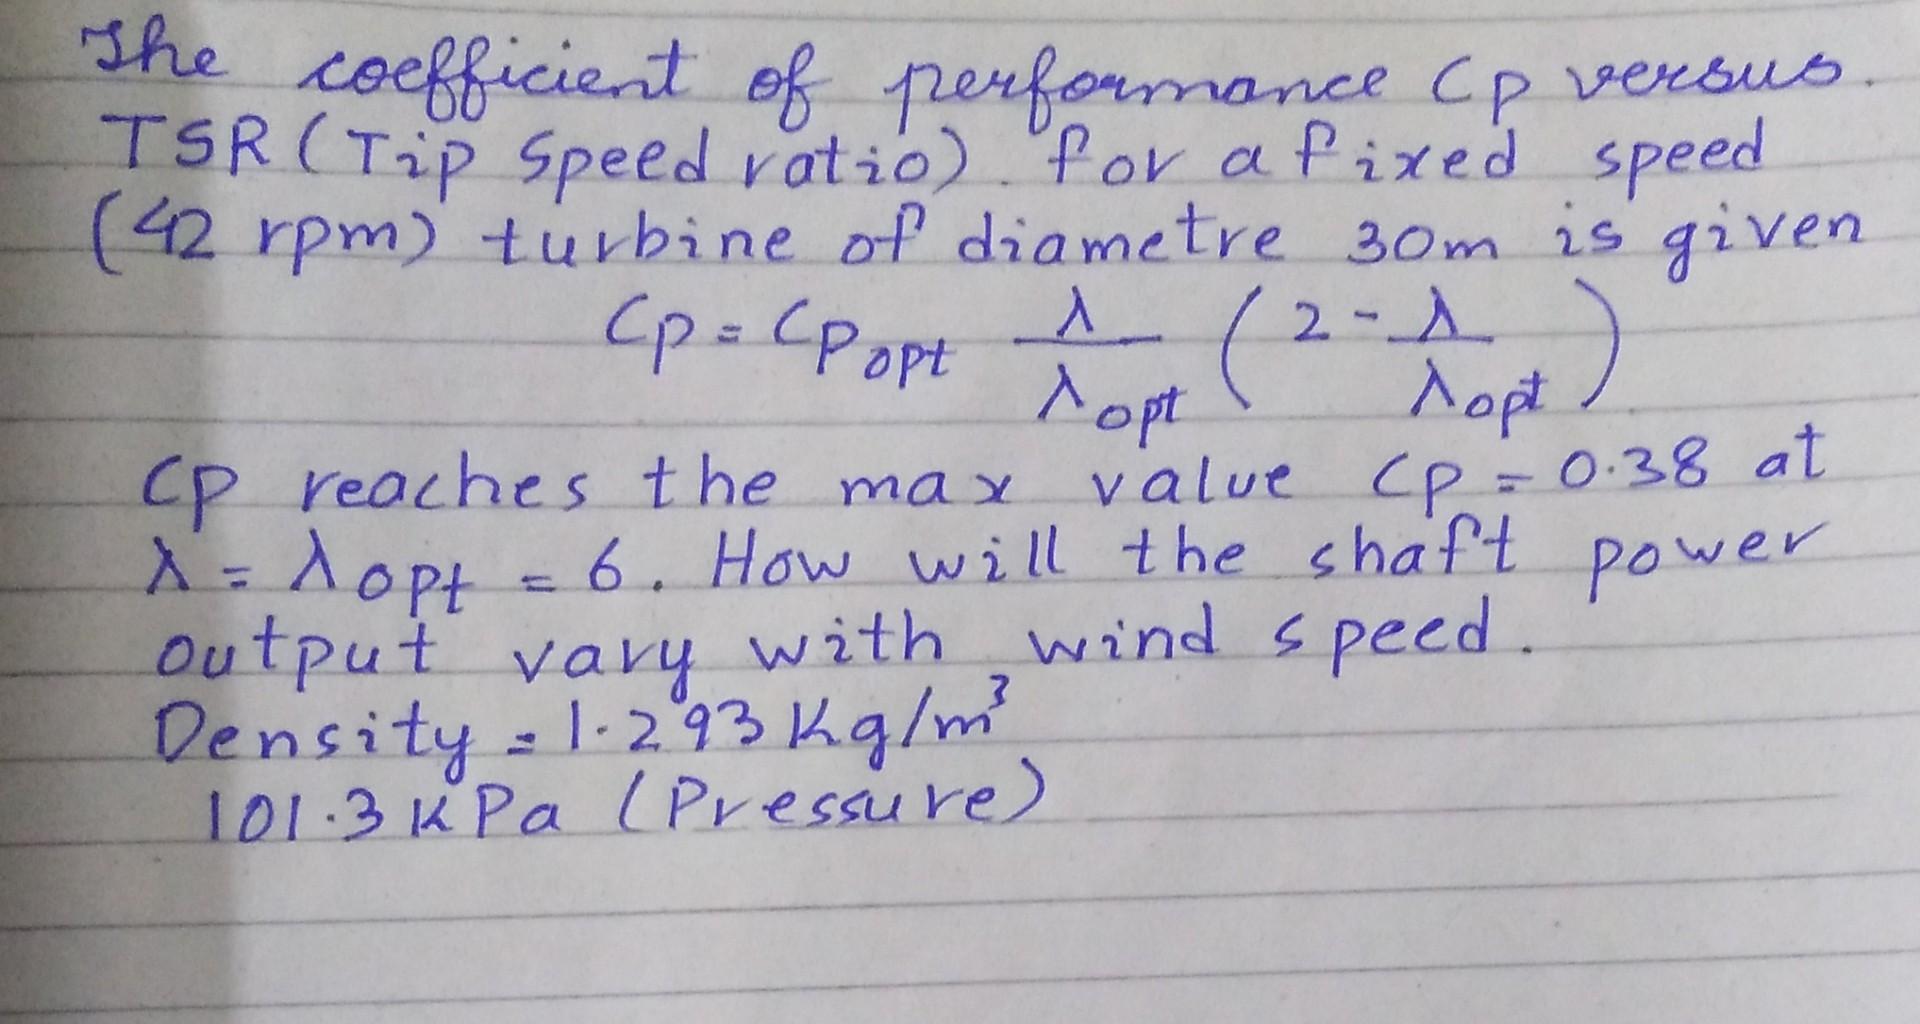 The coefficient of performance Cp versus.
TSR (Tip Speed ratio). for a fixed speed
(42 rpm) turbine of diametre 30m is given
Cp = Cp opt λ/λopt (2 - λ/λopt)
Cp reaches the max value Cp = 0.38 at
λ = λopt = 6. How will the shaft power
output vary with wind speed.
Density = 1.293 Kg/m³
101.3 KPa (Pressure)